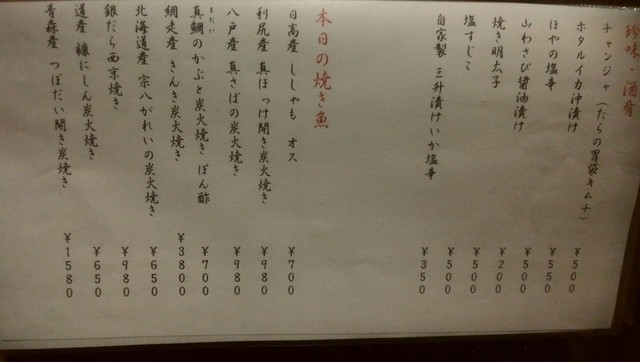 珍味・酒肴
チャンジャ（たらの胃袋キムチ）
ホタルイカ沖漬け ￥500
ほやの塩辛 ￥550
山わさび醤油漬け ￥500
焼き明太子 ￥200
塩すじこ ￥500
自家製 三升漬けいか塩辛 ￥500
￥350
本日の焼き魚
日高産 ししゃも オス ￥700
利尻産 真ほっけ開き炭火焼き ￥980
八戸産 真さばの炭火焼き ￥980
真鯛のかぶと炭火焼き ぽん酢 ￥700
まだい
網走産 きんき炭火焼き ￥3800
北海道産 宗八がれいの炭火焼き ￥650
銀だら西京焼き ￥980
道産 糠にしん炭火焼き ￥650
青森産 つぼだい開き炭焼き ￥1580